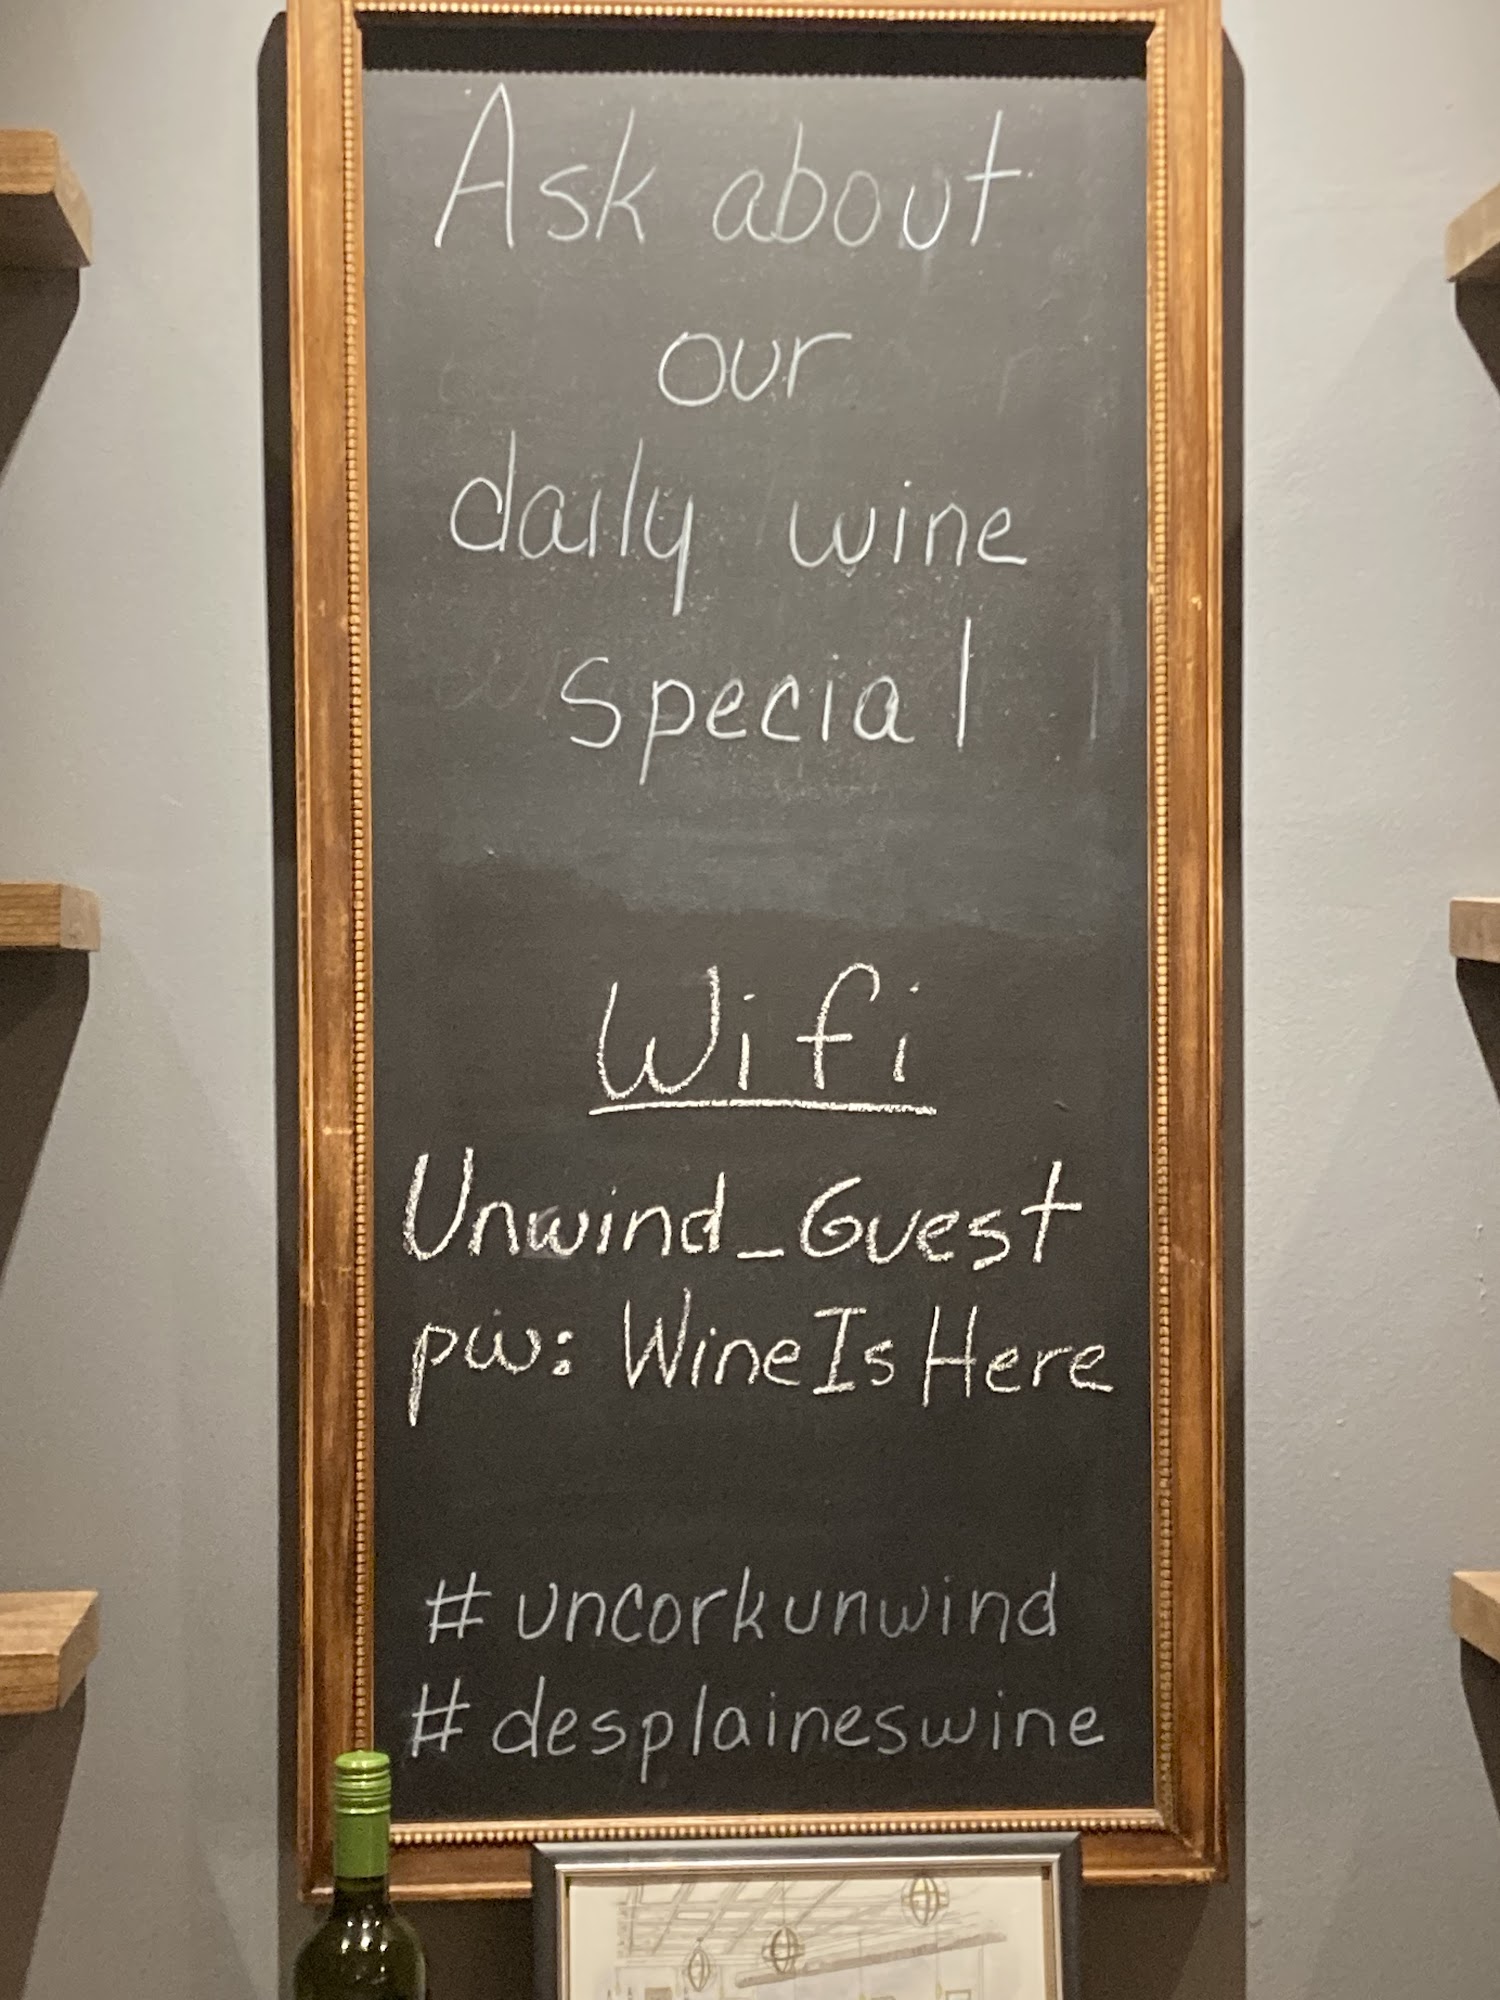 Ask about
our
daily wine
special
Wifi
Unwind_Guest
pw: WineIsHere
#uncorkunwind
#desplaineswine